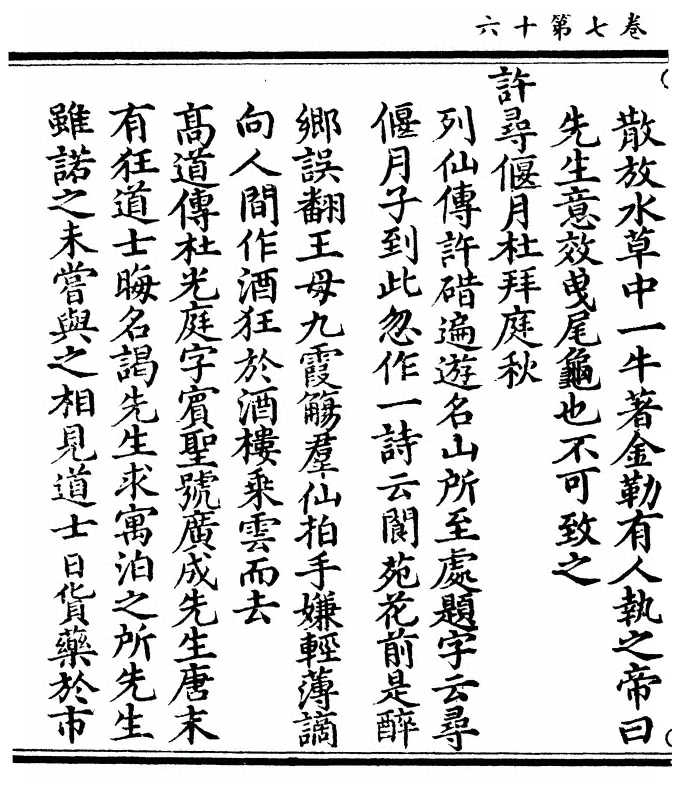 卷七第十六
散放水草中一牛著金勒有人執之帝曰
先生意效曳尾龜也不可致之
許尋偃月杜拜庭秋
列仙傳許碏遍遊名山所至處題字云尋
偃月子到此忽作一詩云閬苑花前是醉
鄉誤翻王母九霞觴羣仙拍手嫌輕薄謫
向人間作酒狂於酒樓乘雲而去
髙道傳杜光庭字賓聖號廣成先生唐末
有狂道士晦名謁先生求寓泊之所先生
雖諾之未嘗與之相見道士日貨藥於市